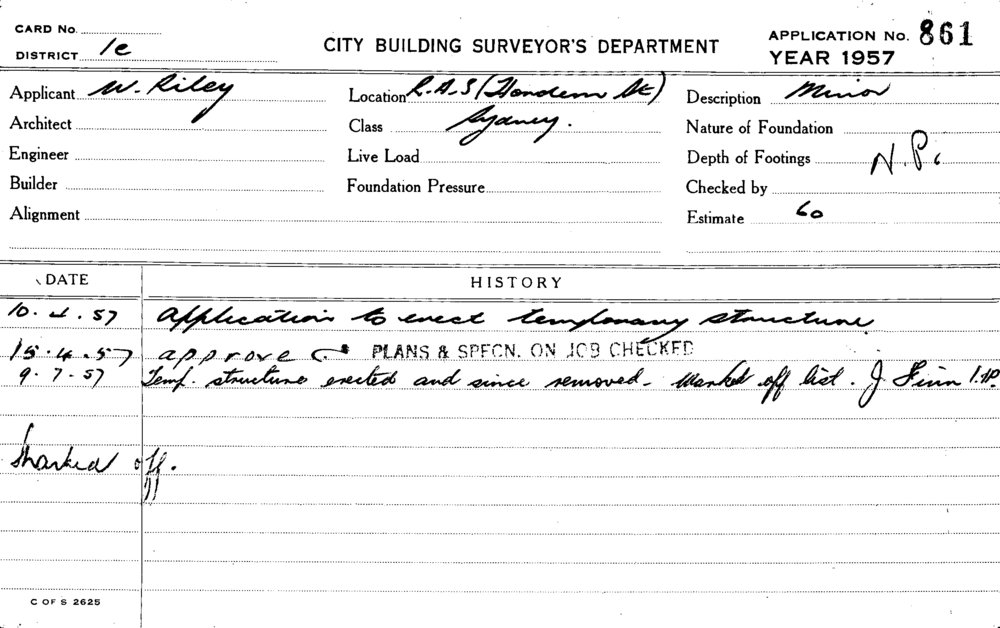 CARD No.
DISTRICT 1e
CITY BUILDING SURVEYOR'S DEPARTMENT
APPLICATION No. 861
YEAR 1957
Applicant W. Riley
Location R.A.S
Description Minor
Architect
Class Sydney.
Nature of Foundation
Engineer
Live Load
Depth of Footings N.P.
Builder
Foundation Pressure
Checked by
Alignment
Estimate 60
DATE HISTORY
10.4.57 Application to erect temporary structure
15.4.57 approve PLANS & SPECN. ON JOB CHECKED
9.7.57 Temp. structure erected and since removed. Marked off list. J
Marked off.
C OF S 2625